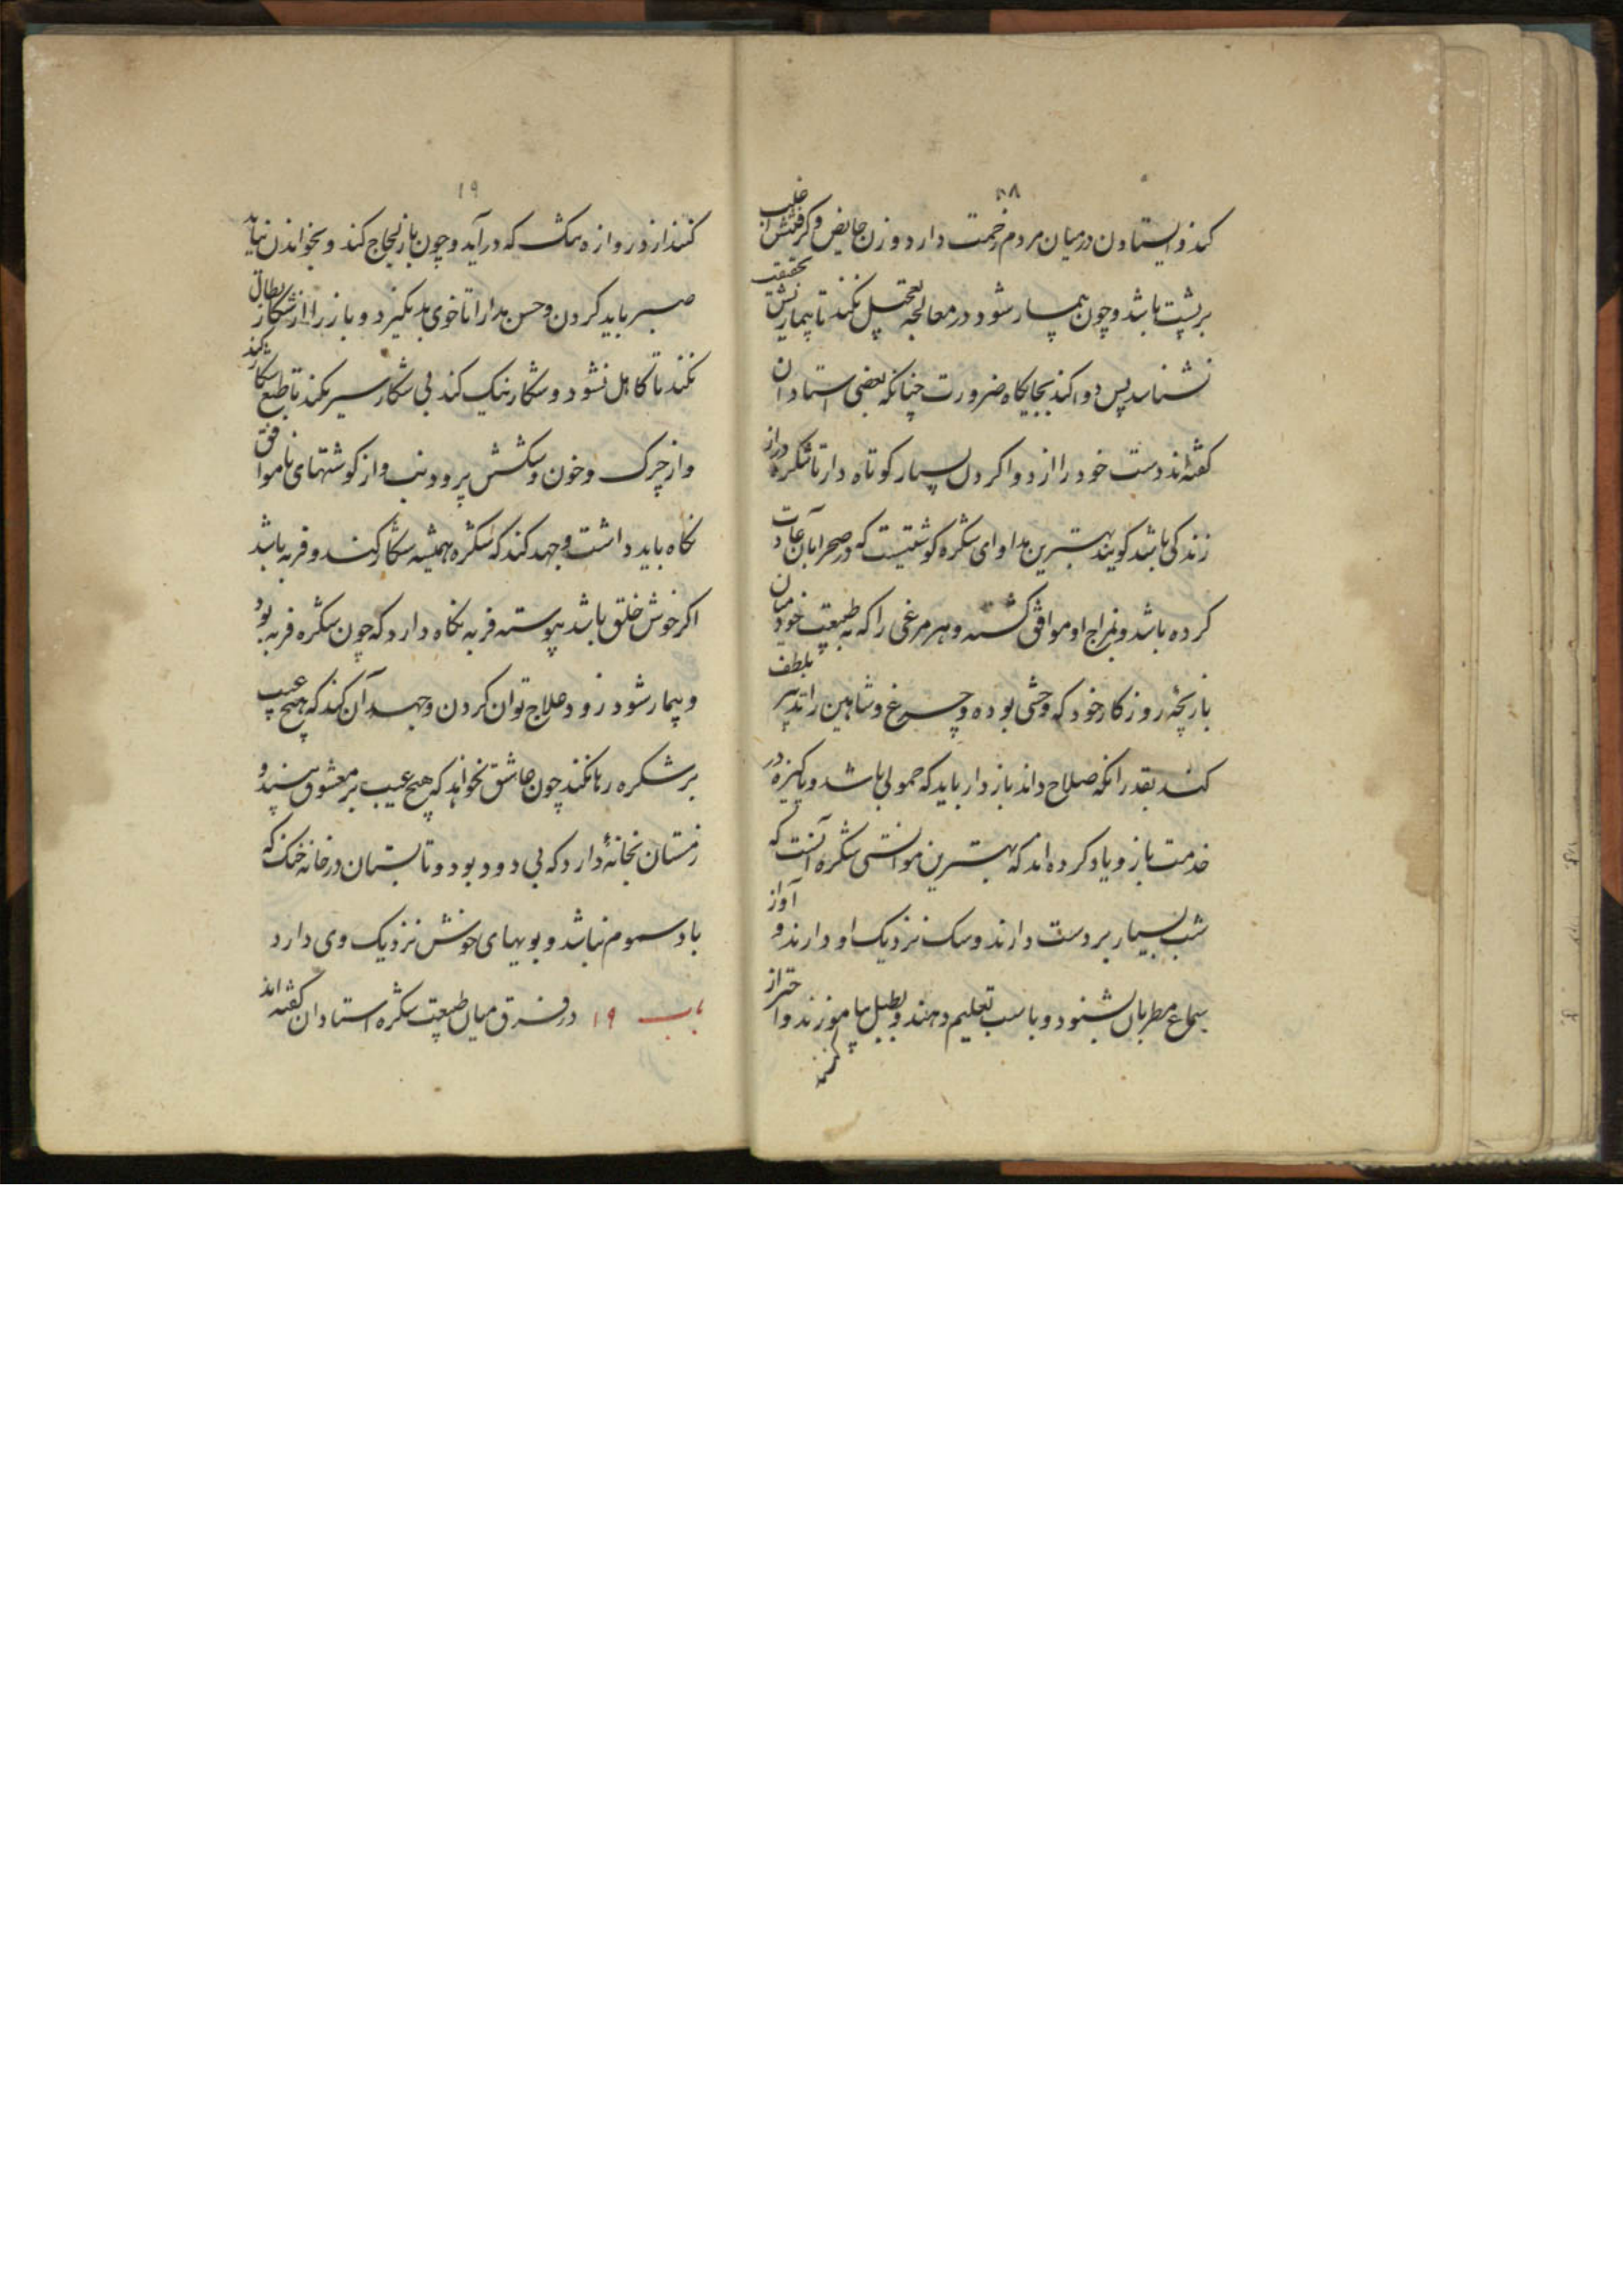 ۱۸
کند و ایستادن در میان مردم زحمت دارد و زن حایض و گرفتنش از جلب
بر پشت باشد و چون بیمار شود در معالجه تعجیل نکند تا بیماریش بحقیقت
نشناسد پس دوا کند بجایکاه ضرورت چنانکه بعضی استادان
کفته‌اند دست خود را از دوا کردن بسیار کوتاه دار تا شکره دراز
زندکی باشد کویند بهترین مداوای شکره کوشتیست که در صحرا بآن عادت
کرده باشد و بمزاج او موافق کشته و هر مرغی را که به طبیعت خود میان
باریچهٔ روزکار خود که وحشی بوده و چرغ و شاهین را تدبیر بلطف
کند بقدر انکه صلاح داند بازدار باید که حمولی باشد و پاکیزه در
خدمت باز و یاد کرده‌اند که بهترین موانستی شکره آنست که
شب بسیار بر دست دارند و سک نزدیک او دارند و آواز
سماع مطربان بشنود و با اسب تعلیم دهند و بطبل بیاموزند و احتراز
کنند
۱۹
کنند از دروازه تنک که درآید و چون باز لجاج کند و بخواندن نیاید
صبر باید کردن و حسن مدارا تا خوی بد نکیرد و باز را از شکار بطال
نکند تا کاهل نشود و شکار نیک کند بی شکار سیر نکند تا طمع شکار کند
و از چرک و خون و شکش پر و دنب و از کوشتهای ناموافق
نکاه باید داشت و جهد کند که شکره همیشه شکار کند و فربه باشد
اکر خوش خلق باشد پیوسته فربه نکاه دارد که چون شکره فربه بود
و بیمار شود زود علاج توان کردن و جهد آن کند که هیچ عیب
بر شکره رها نکند چون عاشق نخواهد که هیچ عیب بر معشوق بیند و
زمستان بخانهٔ دارد که بی دود بود و تابستان در خانه خنک که
باد سموم نباشد و بویهای خوش نزدیک وی دارد
باب ۱۹ در فرق میان طبیعت شکره استادان کفته‌اند